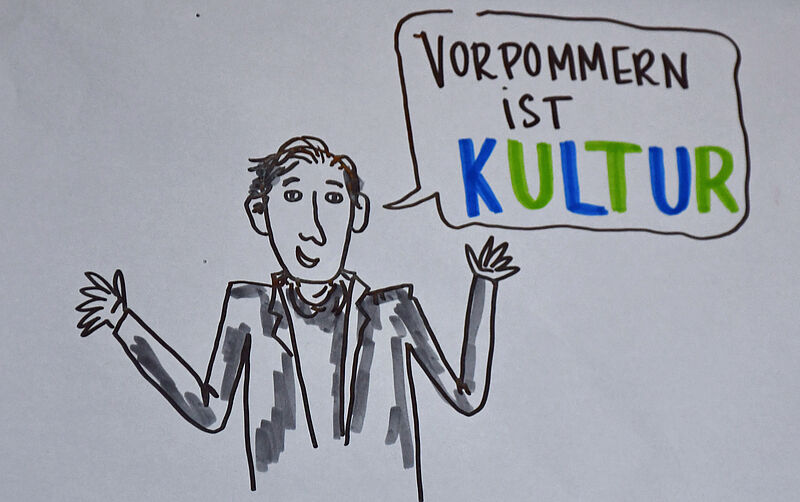 VORPOMMERN
iST
KULTUR